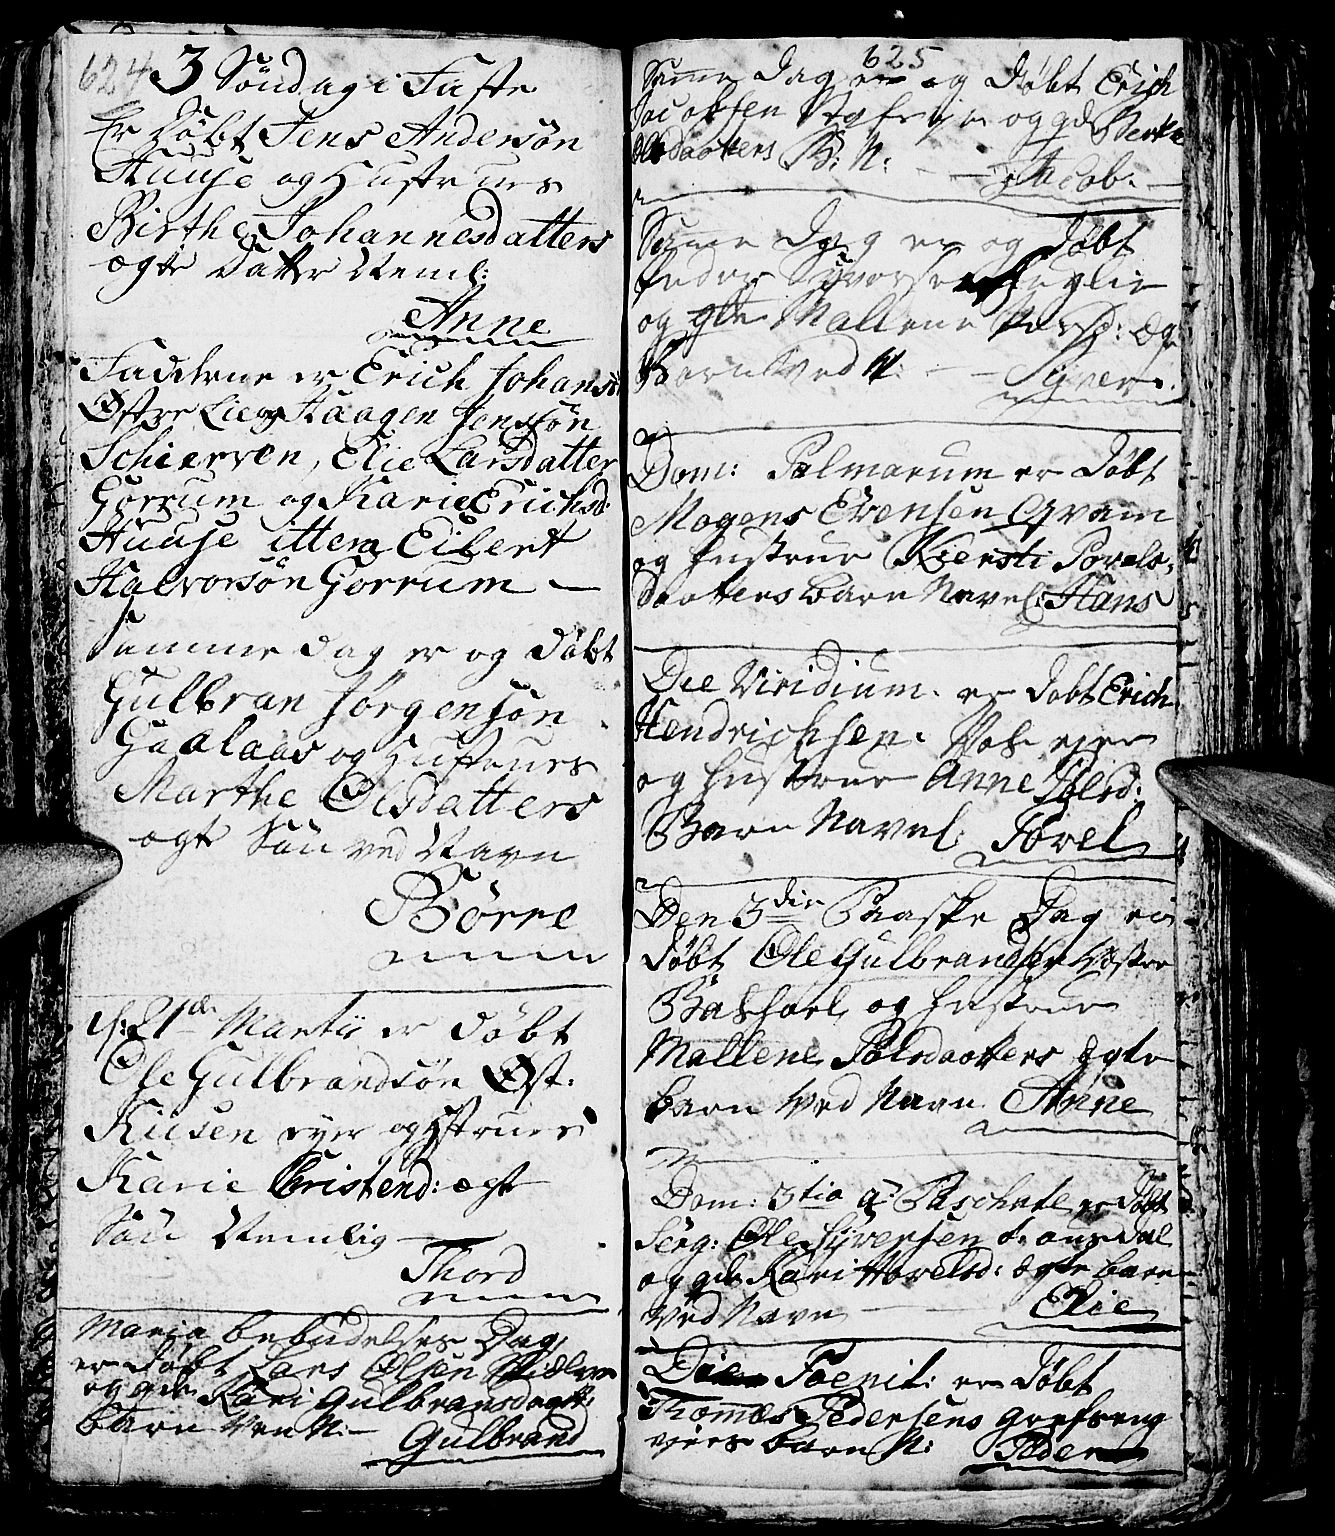 624
3 Söndag i Faste
Er Döbt Jens Andersön
Huuse og Hustrues
Birthe Johannesdatters
ægte Datter Neml:
Anne
Fadderne er Erich Johans:
Østre Lie og Haagen Jenssön
Schierven, Elie Larsdatter
Gorrum og Karie Erichsd:
Huuse item Eilert
Halvorsön Gorrum
Samme dag er og Döbt
Gulbran Jörgensön
Gaalaas og Hustrues
Marthe Olsdatters
ægte Sön ved Navn
Börre
d: 21de Martii er Döbt
Ole Gulbrandsön Øst:
Kiisen eyer og Hstrues
Karie Cristend: ægte
Sön Nemlig
Thord
Maria bebudelses Dag
er döbt Lars Olsen
og gde Kari Gulbransdaatt:
barn ved N:
Gulbrand
625
Samme Dag er og Döbt Erich
Jacobsen og gde Berte
Olsdaatters B: N: Jacob.
Samme Dag er og Döbt
Peder Syversen Fuglie
og gde Mallene Persd: Æg
Barn Ved N: Syver.
Dom: Palmarum er Döbt
Mogens Evensen Qvam
og hustrue Kiersti Povels
daatters barn Navnl: Hans
Die Viridium. er döbt Erich
Hendrichsen. eyer
og hustrue Anne Polsd:
Barn Navnl: Povel
Den 3die Paaske Dag er
Döbt Ole Gulbrandsen Vestre
og hustrue
Mallene Polsdaatters Egte
barn Ved Navn Anne
Dom: 3tia a Paschate er Döbt
Serg: Ole Syversen
og gde Kari Povelsd: Ægte barn
Ved Navn Elie
Die Poenit: er Döbt
Thomas Pedersens Grefseng
eyers barn N: Peder